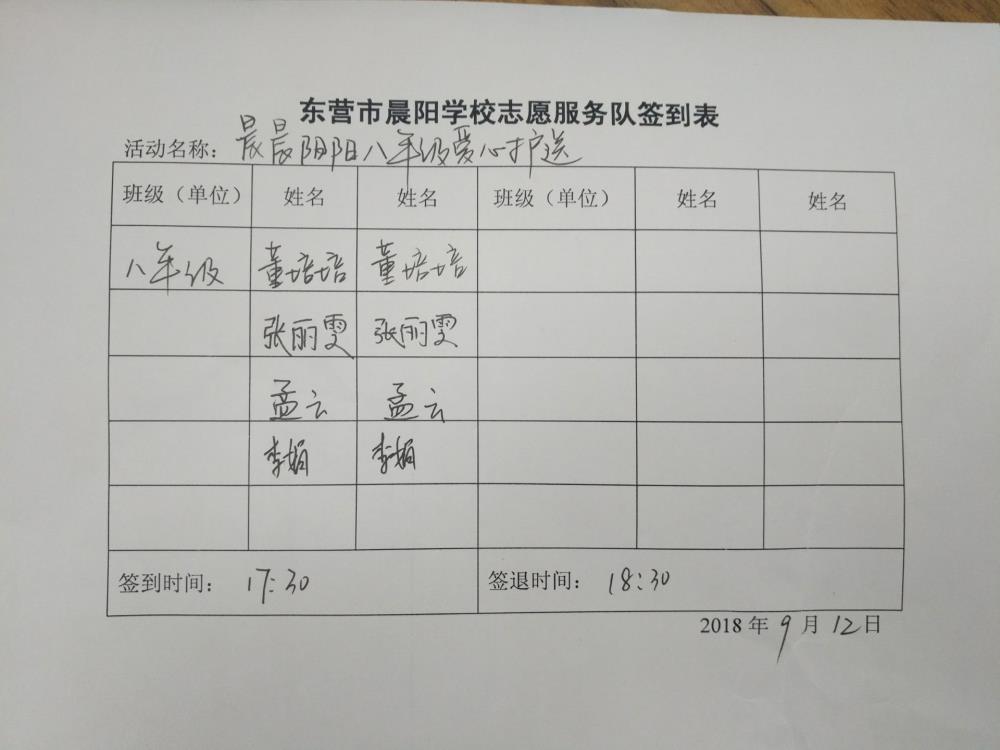 东营市晨阳学校志愿服务队签到表
活动名称：晨晨阳阳八年级爱心护送
班级（单位） 姓名 姓名 班级（单位） 姓名 姓名
八年级 董培培 董培培
张丽雯 张丽雯
孟云 孟云
李娟 李娟
签到时间： 17:30 签退时间： 18:30
2018年9月12日